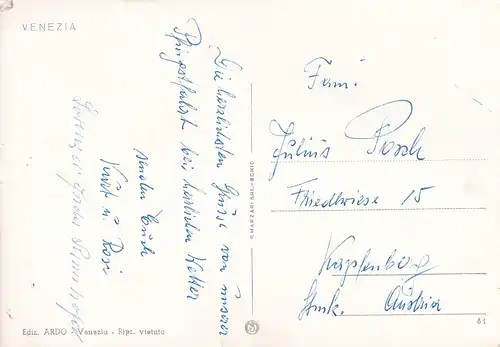 VENEZIA
Die herzlichsten Grüsse von unserer
Pfingstfahrt bei herrlichen Wetter
senden Euch
Kurt u. Rosi
Fam.
Julius Posch
Friedlwiese 15
Kapfenberg
Stmk. Austria
S. MARZARI S.R.L. - SCHIO
Ediz. ARDO - Venezia - Ripr. vietata
81